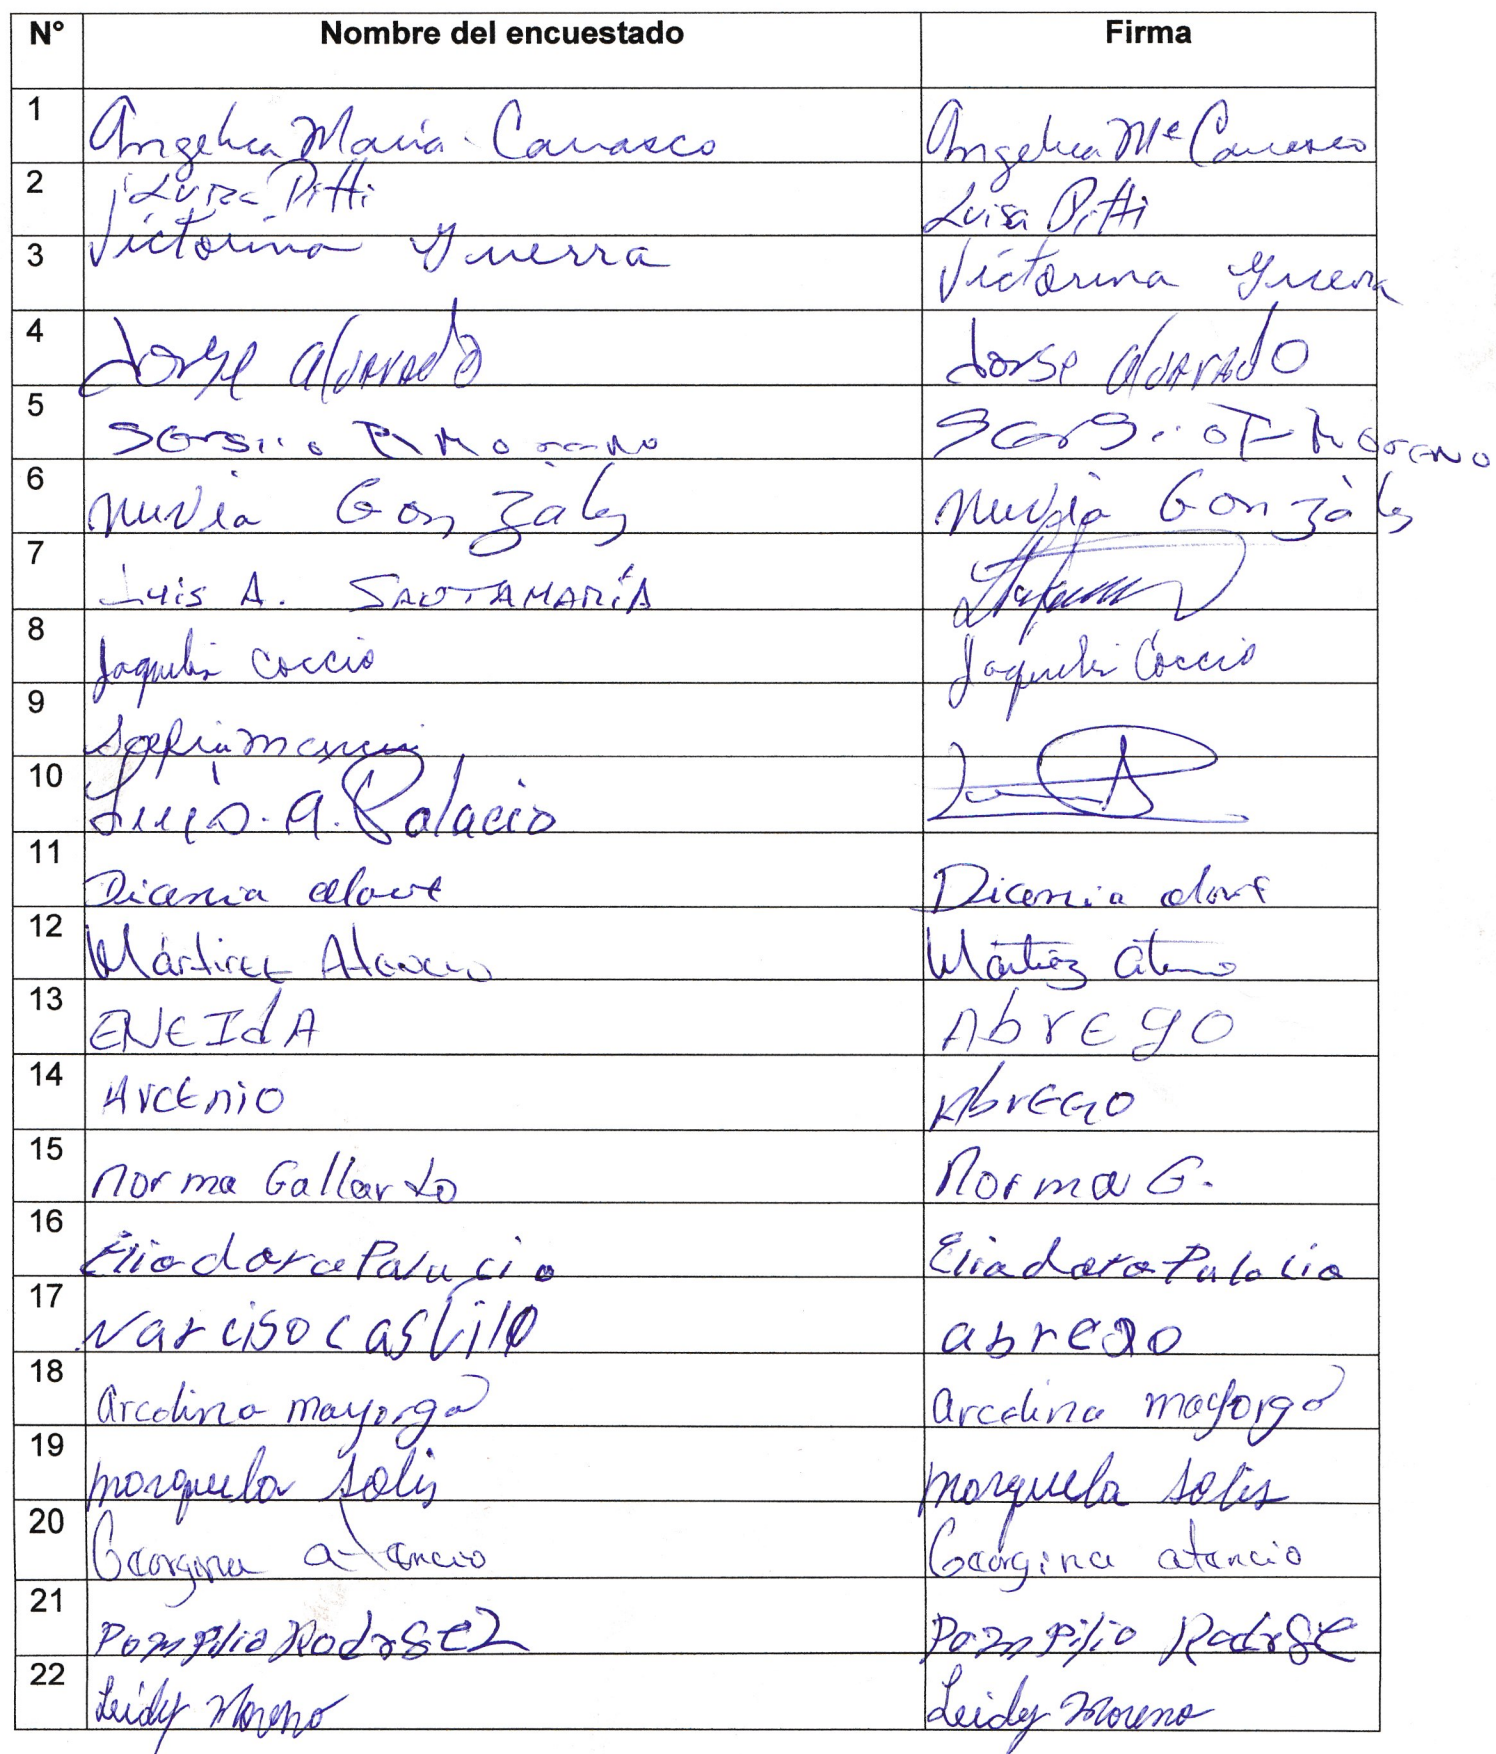 N° Nombre del encuestado Firma
1 Angelica María Carrasco Angelica Mª Carrasco
2 Luisa Pitti Luisa Pitti
3 Victorina Guerra Victorina Guerra
4 Jorge Alvarado Jorse Alvarado
5 Sergio Moreno Moreno
6 Nuvia Gonzáles Nuvia Gonzáles
7 Luis A. SANTAMARÍA
8 Jaquelin Coccio Jaquelin Coccio
9
10 Luis. A. Palacio
11 Dicenia Dicenia
12 Mártirez Atencio Mártirez
13 ENEIdA AbrEgO
14 ArcEniO AbrEGO
15 Norma Gallardo Norma G.
16 Eliadora Palacio Eliadora Palacio
17 Narciso Castillo abrego
18 Arcelina mayorga arcelina mayorga
19 Marquela Solis Marquela Solis
20 Georgina atencio Georgina atencio
21 Pompilio Pompilio
22 Leidy Moreno Leidy Moreno